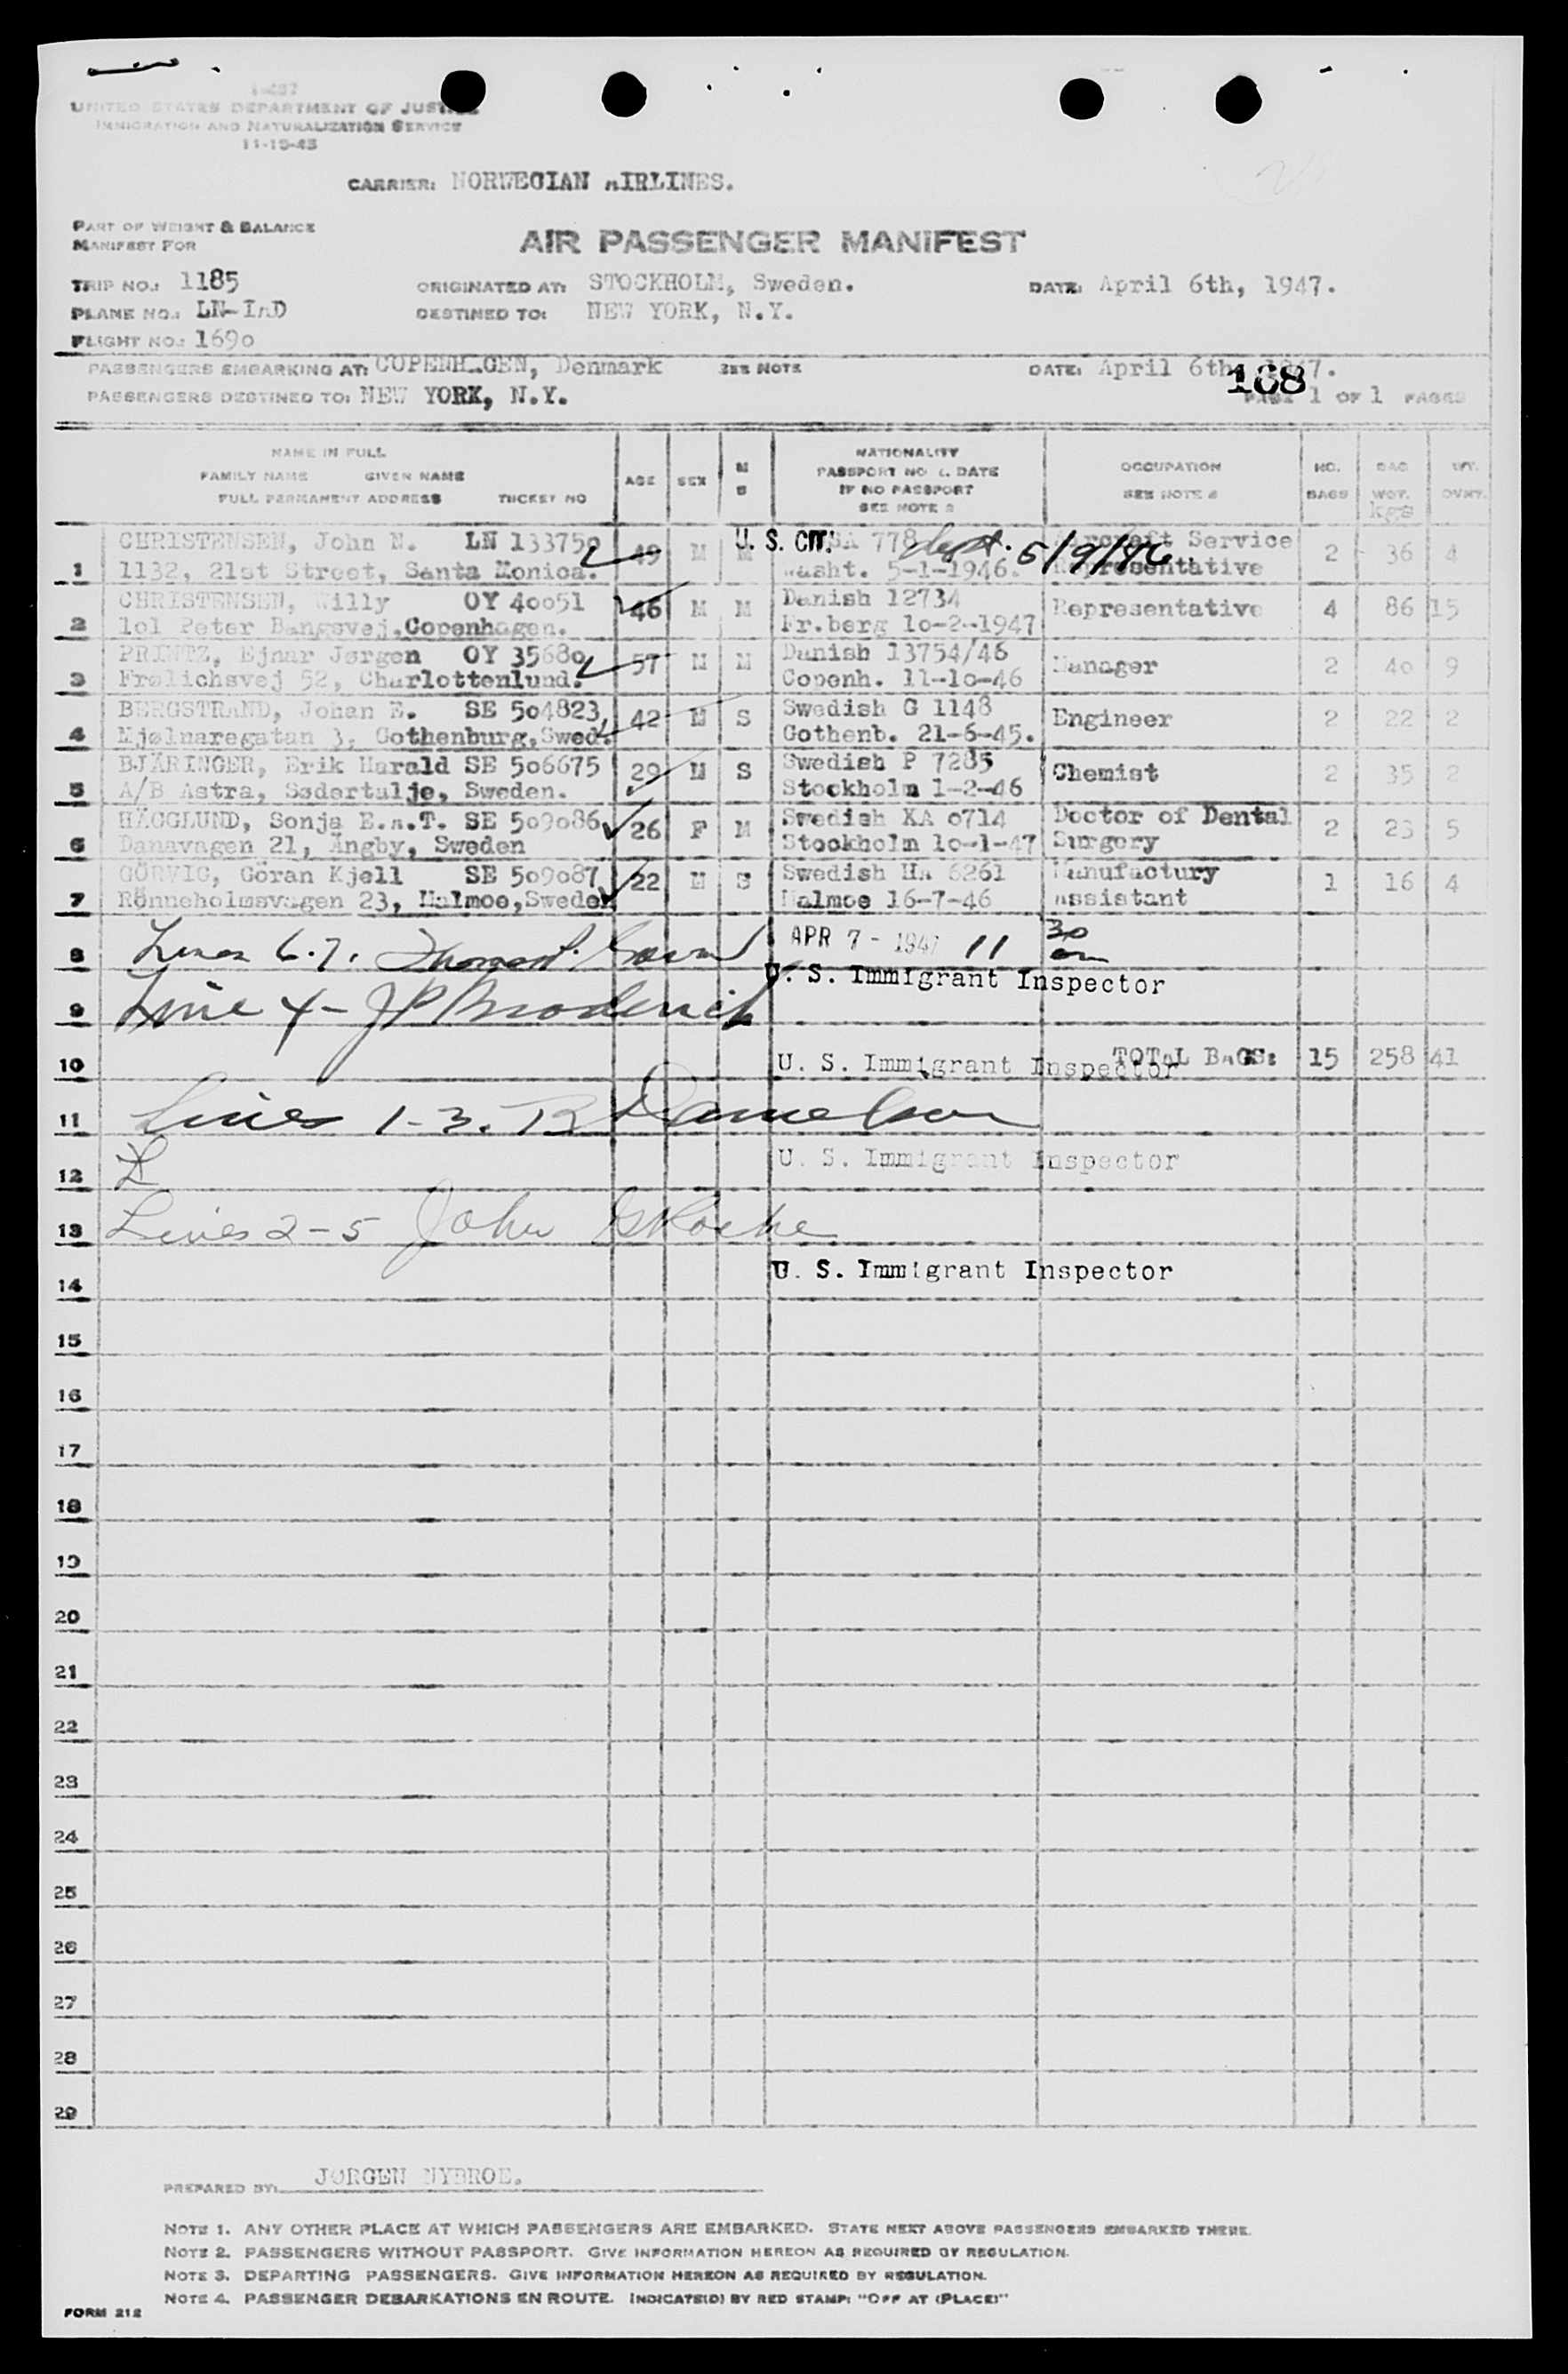 UNITED STATES DEPARTMENT OF JUSTICE
IMMIGRATION AND NATURALIZATION SERVICE
11-15-45
CARRIER: NORWEGIAN AIRLINES.
PART OF WEIGHT & BALANCE
MANIFEST FOR
AIR PASSENGER MANIFEST
TRIP NO.: 1185 ORIGINATED AT: STOCKHOLM, Sweden. DATE: April 6th, 1947.
PLANE NO.: LN-IAD DESTINED TO: NEW YORK, N.Y.
FLIGHT NO.: 1690
PASSENGERS EMBARKING AT: COPENHAGEN, Denmark SEE NOTE DATE: April 6th, 1947.
168
PASSENGERS DESTINED TO: NEW YORK, N.Y. PAGE 1 OF 1 PAGES
NAME IN FULL
FAMILY NAME GIVEN NAME
FULL PERMANENT ADDRESS TICKET NO
AGE SEX M S
NATIONALITY
PASSPORT NO & DATE
IF NO PASSPORT
SEE NOTE 2
OCCUPATION
SEE NOTE 3
NO. BAGS BAG WGT. kgs WT. OVWT.
CHRISTENSEN, John N. LN 133750 49 M M U. S. CIT. USA 778 dept. 5/9/46 Aircraft Service 2 36 4
1 1132, 21st Street, Santa Monica. Washt. 5-1-1946. Representative
CHRISTENSEN, Willy OY 40051 46 M M Danish 12734 Representative 4 86 15
2 101 Peter Bangsvej, Copenhagen. Fr.berg 10-2-1947
PRINTZ, Ejnar Jørgen OY 35680 57 M M Danish 13754/46 Manager 2 40 9
3 Frølichsvej 52, Charlottenlund. Copenh. 11-10-46
BERGSTRAND, Johan E. SE 504823 42 M S Swedish G 1148 Engineer 2 22 2
4 Mjølnaregatan 3, Gothenburg, Swed. Gothenb. 21-6-45.
BJÄRINGER, Erik Harald SE 506675 29 M S Swedish P 7285 Chemist 2 35 2
5 A/B Astra, Sødertalje, Sweden. Stockholm 1-2-46
HÄGGLUND, Sonja E.A.T. SE 509086 26 F M Swedish KA 0714 Doctor of Dental 2 23 5
6 Danavagen 21, Ängby, Sweden Stockholm 10-1-47 Surgery
GÖRVIG, Göran Kjell SE 509087 22 M S Swedish HA 6261 Manufactury 1 16 4
7 Rönneholmsvagen 23, Malmoe, Sweden Malmoe 16-7-46 Assistant
8 Lines 6.7. Thomas P. APR 7 - 1947 11 30 am
U. S. Immigrant Inspector
9 Line 4 - JP Broderick
10 U. S. Immigrant Inspector TOTAL BAGS: 15 258 41
11 Lines 1-3. R Danielson
12 U. S. Immigrant Inspector
13 Lines 2-5 John G Roche
14 U. S. Immigrant Inspector
15
16
17
18
19
20
21
22
23
24
25
26
27
28
29
PREPARED BY: JØRGEN NYBROE.
NOTE 1. ANY OTHER PLACE AT WHICH PASSENGERS ARE EMBARKED. STATE NEXT ABOVE PASSENGERS EMBARKED THERE.
NOTE 2. PASSENGERS WITHOUT PASSPORT. GIVE INFORMATION HEREON AS REQUIRED BY REGULATION.
NOTE 3. DEPARTING PASSENGERS. GIVE INFORMATION HEREON AS REQUIRED BY REGULATION.
NOTE 4. PASSENGER DEBARKATIONS EN ROUTE. INDICATE(D) BY RED STAMP: "OFF AT (PLACE)"
FORM 212